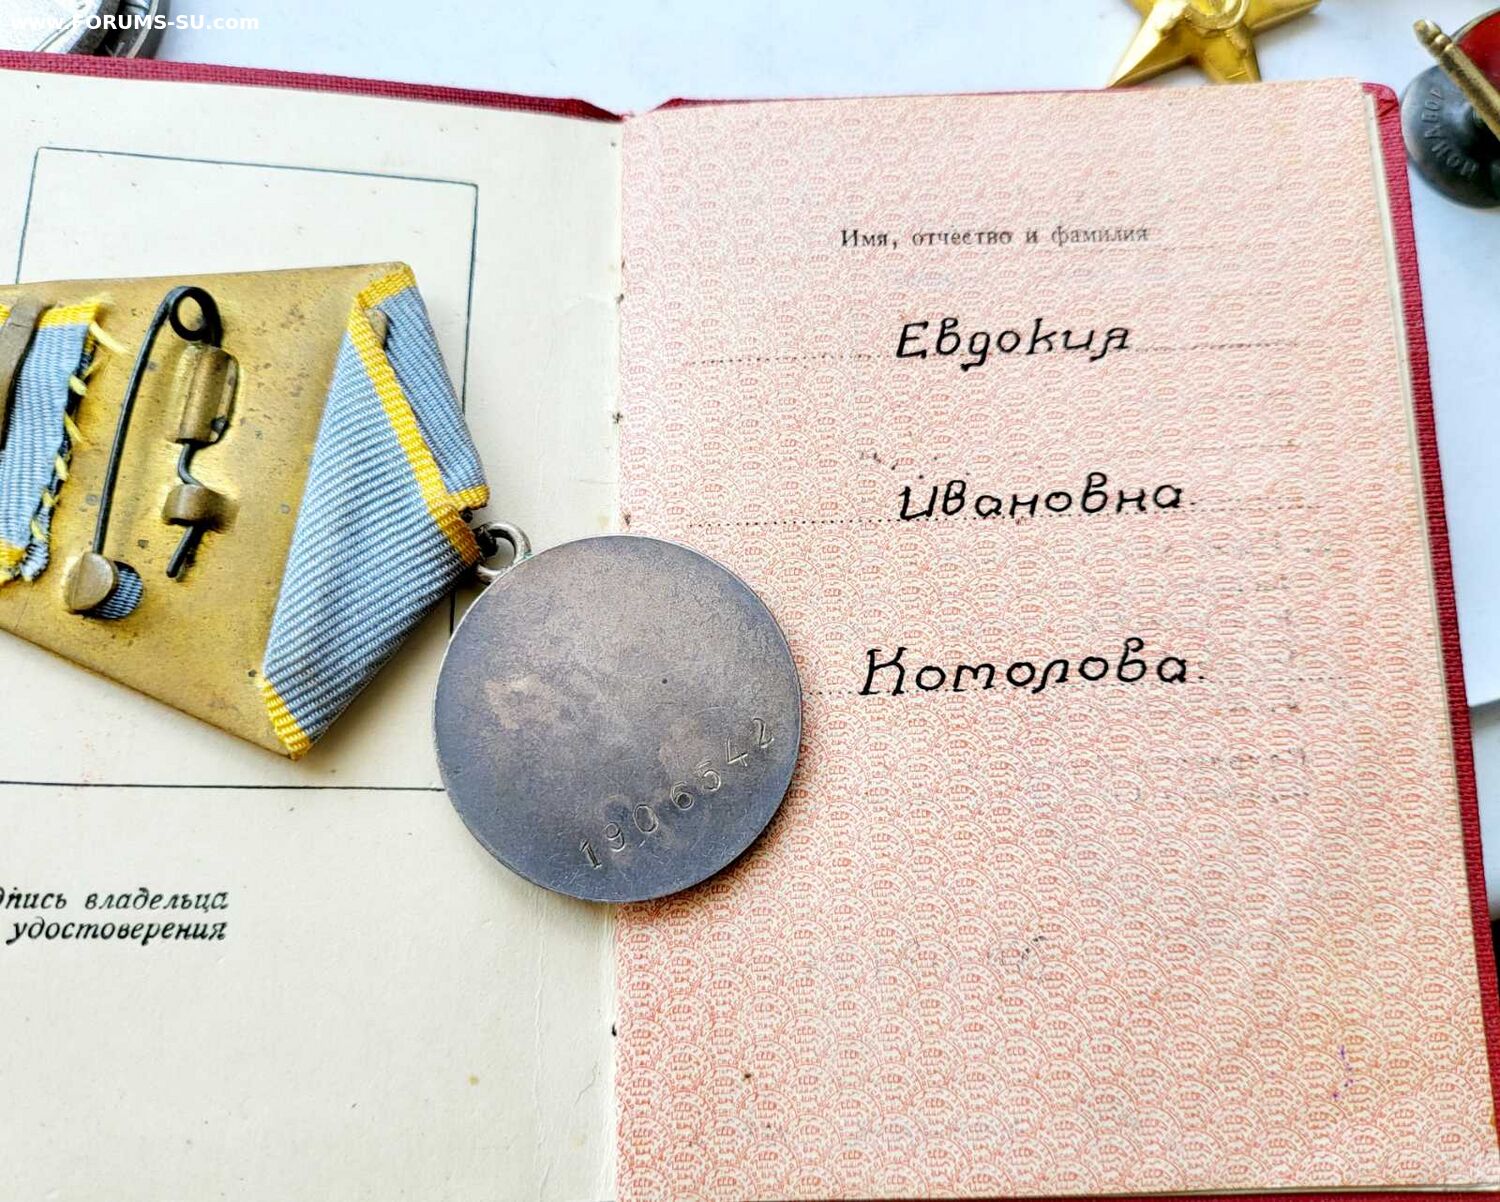 www.FORUMS-SU.com
Имя, отчество и фамилия
Евдокия
Ивановна
Котолова.
1906542
владельца
удостоверения